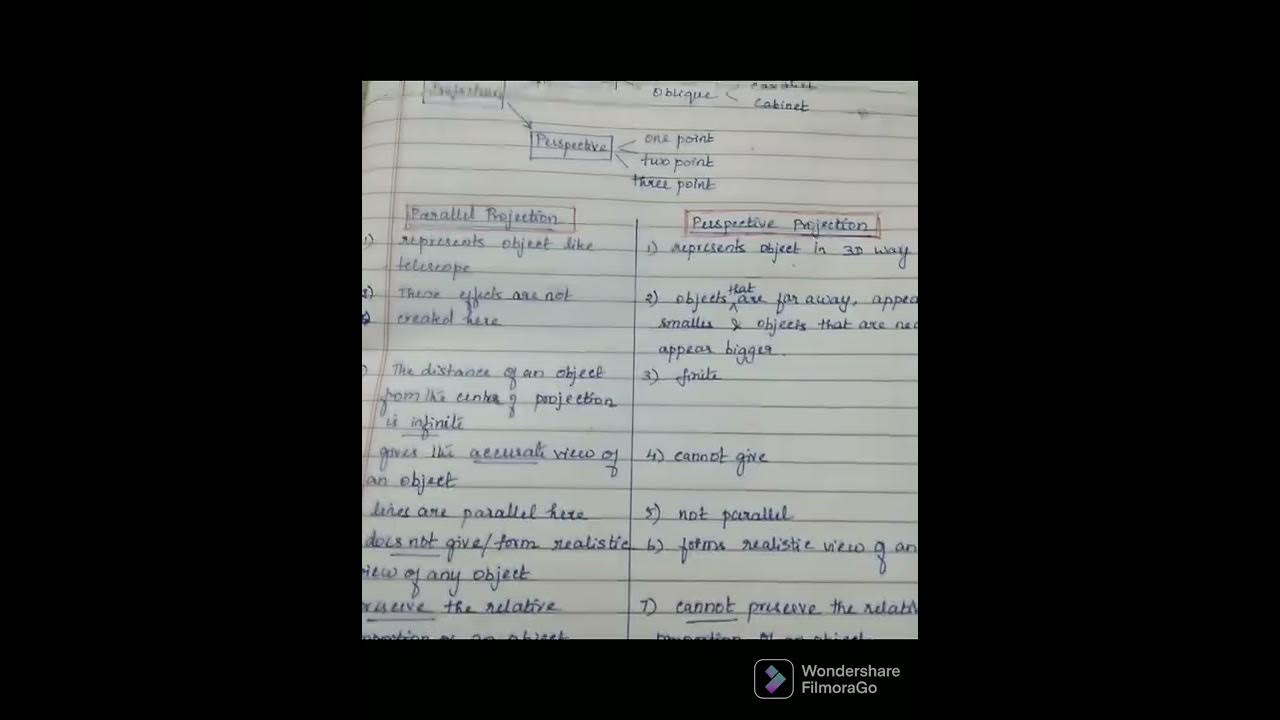 Projection
Oblique
Cabinet
Perspective
one point
two point
three point
Parallel Projection
1) represents object like
telescope
2) These effects are not
created here
) The distance of an object
from the center of projection
is infinite
gives the accurate view of
an object
lines are parallel here
does not give/form realistic
iew of any object
reserve the relative
object
Perspective Projection
1) represents object in 3D way
2) objects that are far away, appea
smaller & objects that are nea
appear bigger.
3) finite
4) cannot give
5) not parallel
6) forms realistic view of an
7) cannot preserve the relativ
Wondershare
FilmoraGo